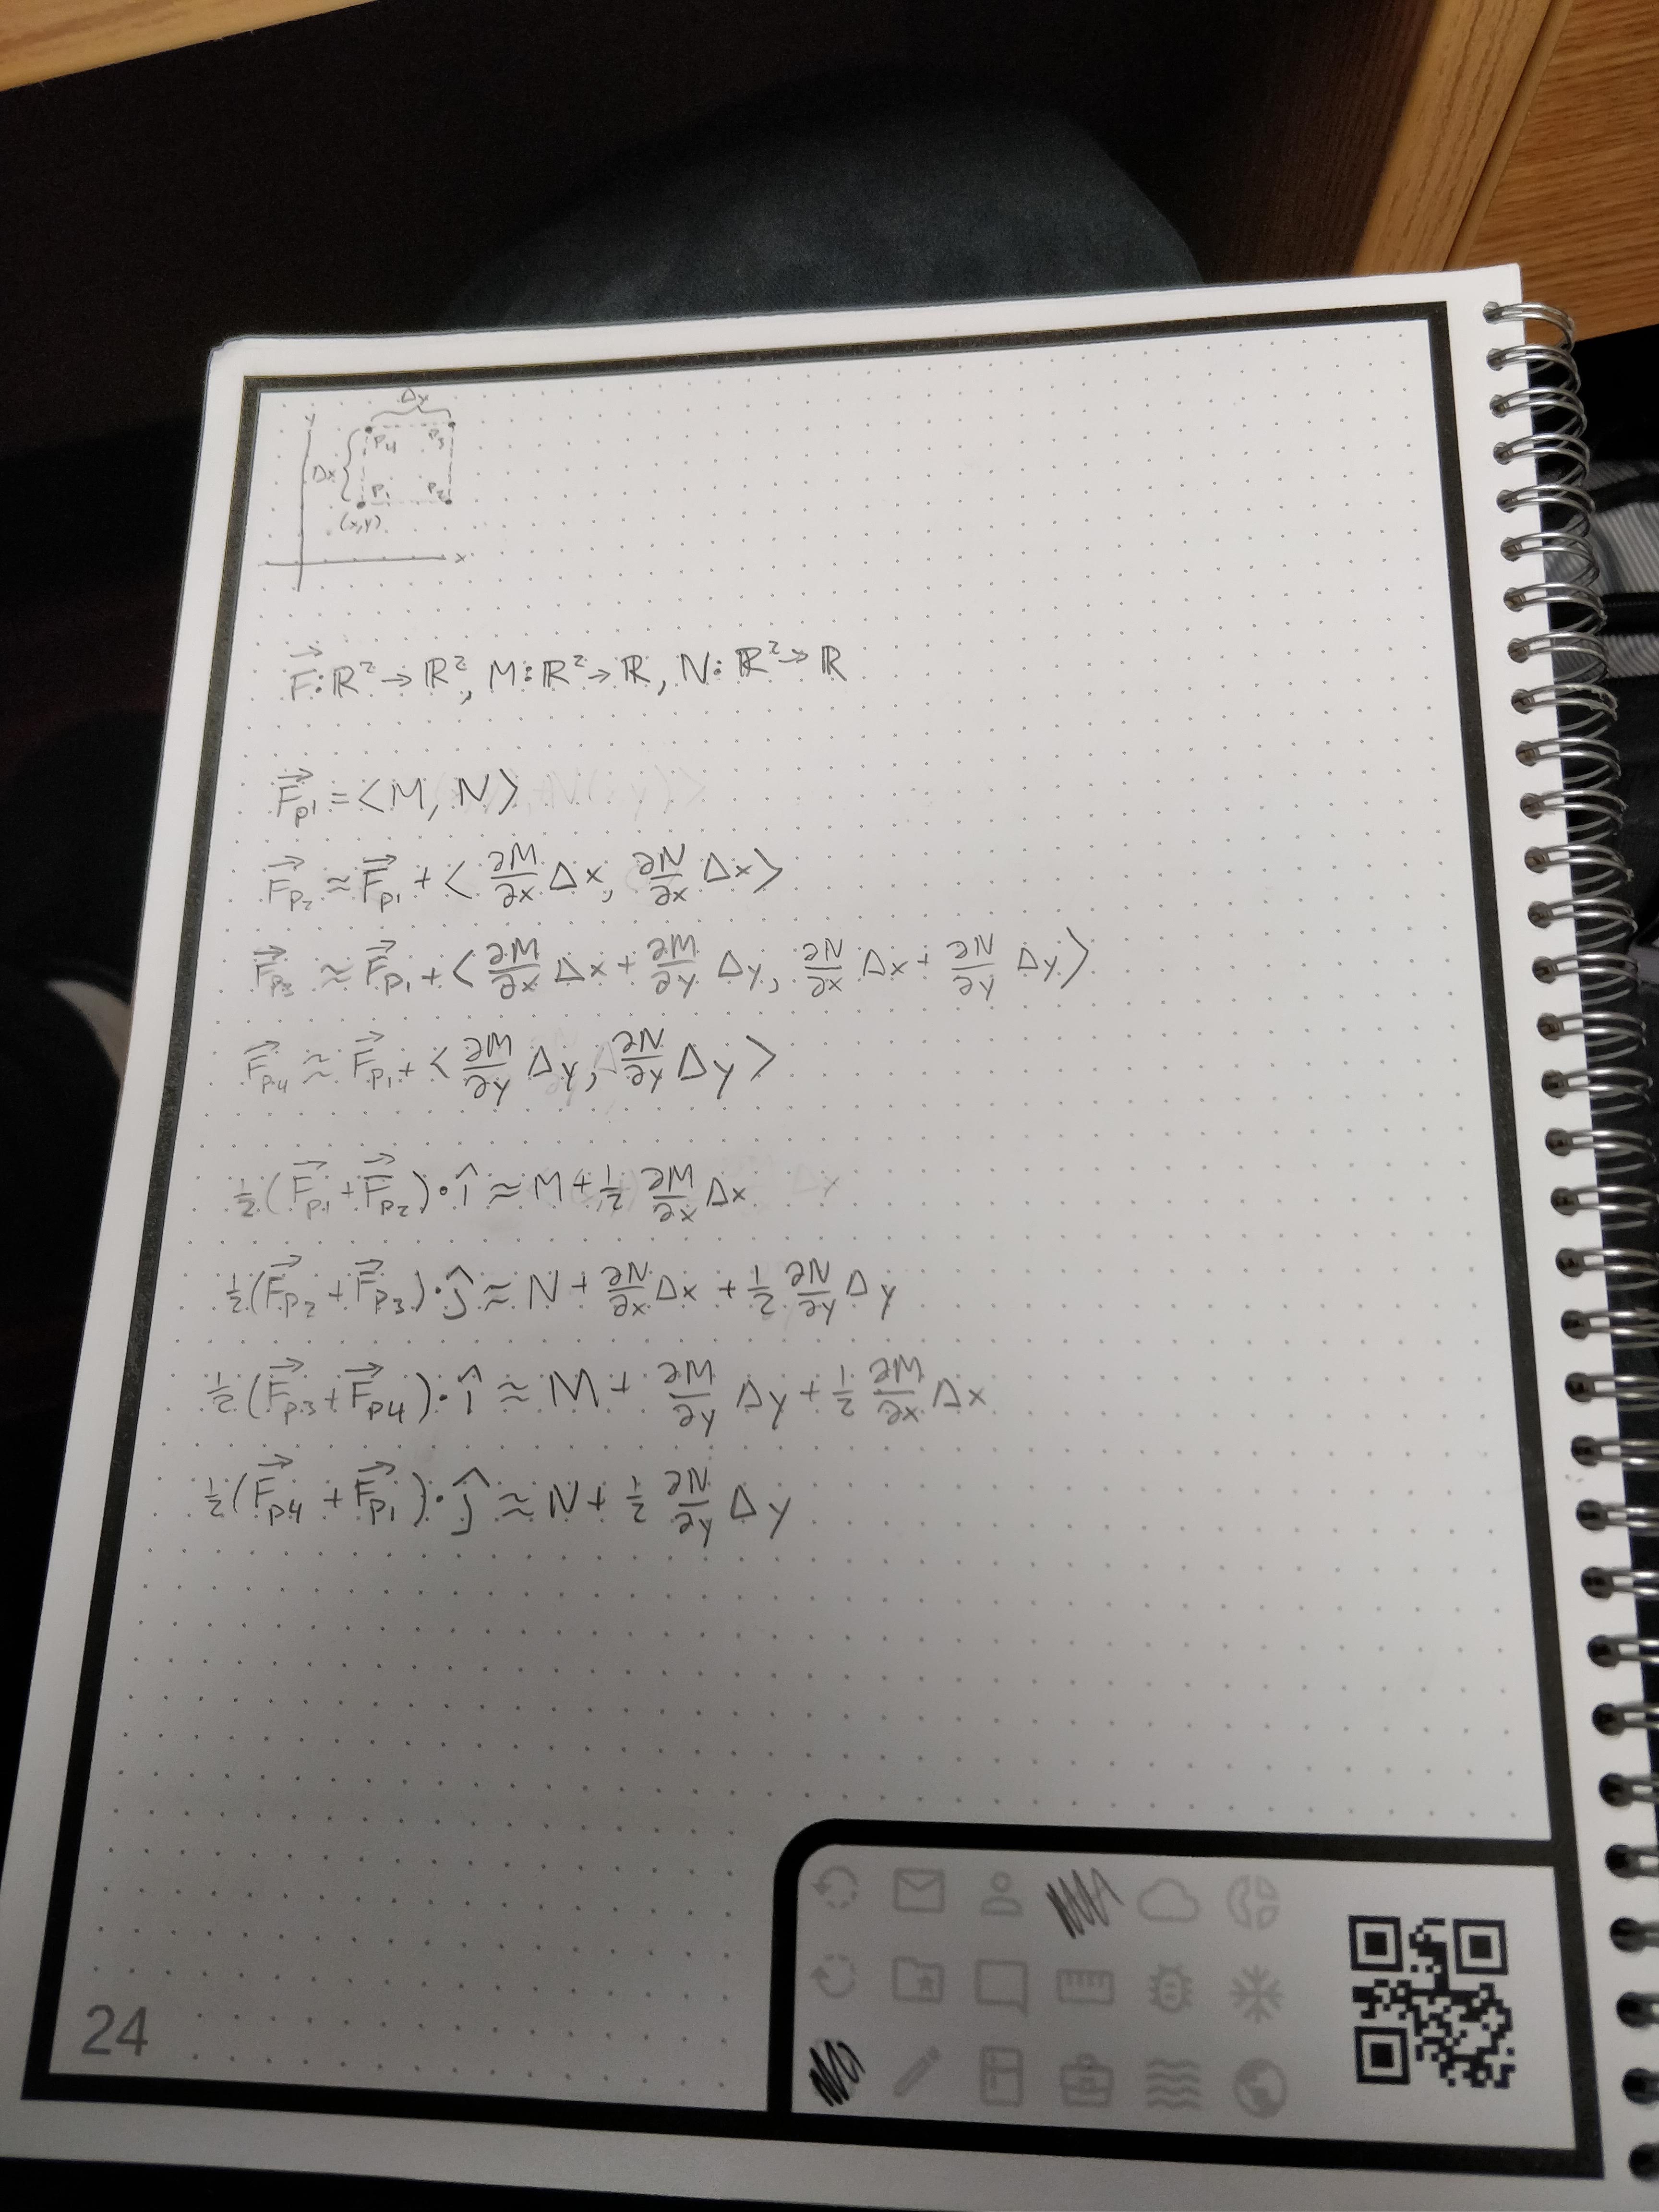 Δy
y
P4 P3
Δx
P1 P2
(x,y)
x
F⃗: ℝ² → ℝ², M: ℝ² → ℝ, N: ℝ² → ℝ
F⃗_p1 = ⟨M, N⟩
F⃗_p2 ≈ F⃗_p1 + ⟨∂M/∂x Δx, ∂N/∂x Δx⟩
F⃗_p3 ≈ F⃗_p1 + ⟨∂M/∂x Δx + ∂M/∂y Δy, ∂N/∂x Δx + ∂N/∂y Δy⟩
F⃗_p4 ≈ F⃗_p1 + ⟨∂M/∂y Δy, ∂N/∂y Δy⟩
½(F⃗_p1 + F⃗_p2)·î ≈ M + ½ ∂M/∂x Δx
½(F⃗_p2 + F⃗_p3)·ĵ ≈ N + ∂N/∂x Δx + ½ ∂N/∂y Δy
½(F⃗_p3 + F⃗_p4)·î ≈ M + ∂M/∂y Δy + ½ ∂M/∂x Δx
½(F⃗_p4 + F⃗_p1)·ĵ ≈ N + ½ ∂N/∂y Δy
24